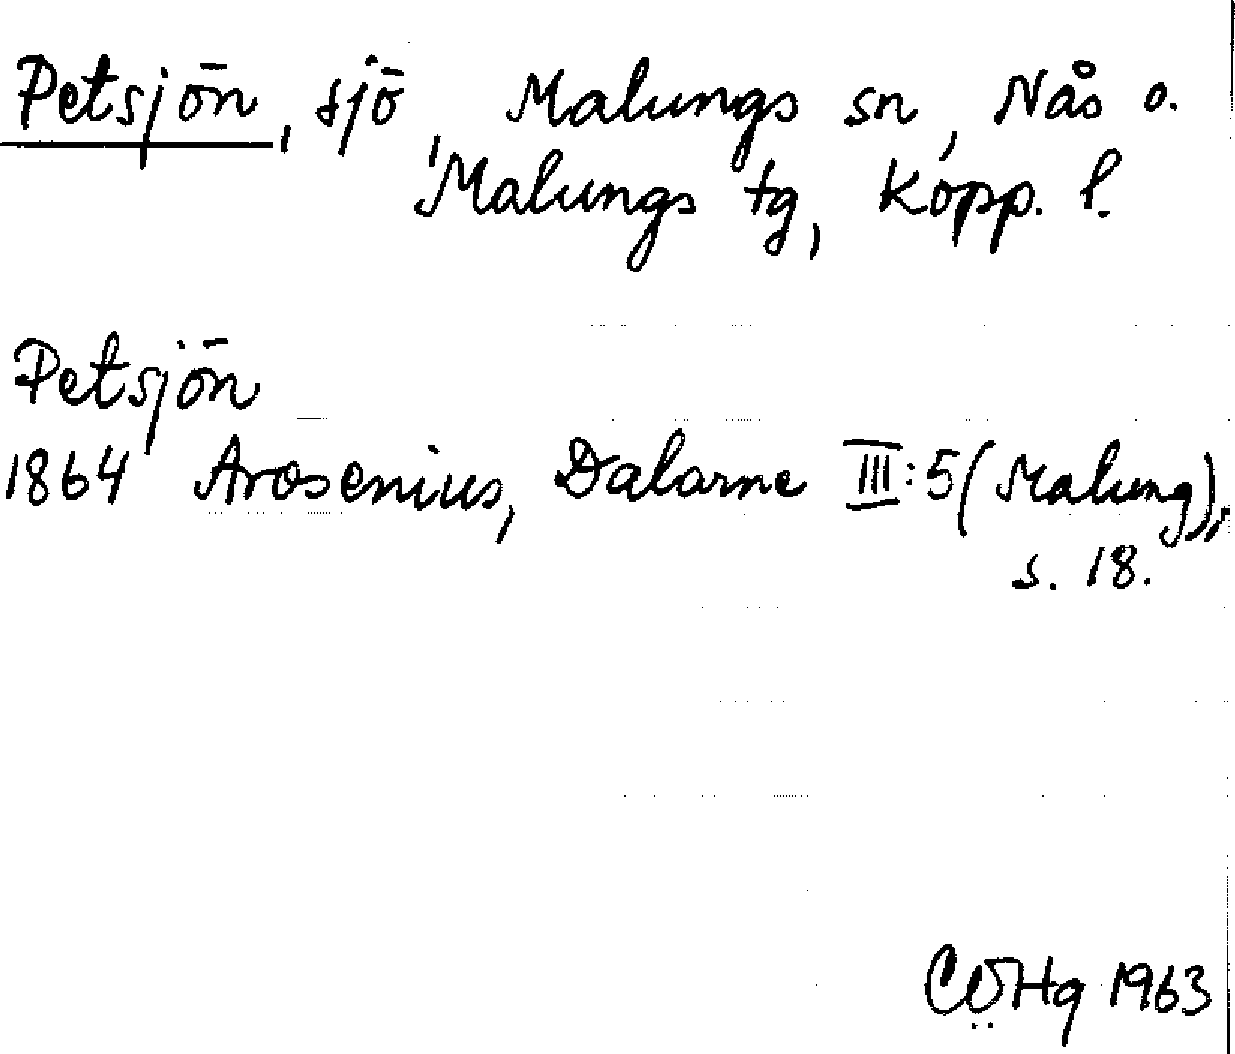 Petsjön, sjö, Malungs sn, Nås o.
Malungs tg, Kopp. l.
Petsjön
1864 Arosenius, Dalarne III:5 (Malung),
s. 18.
1963